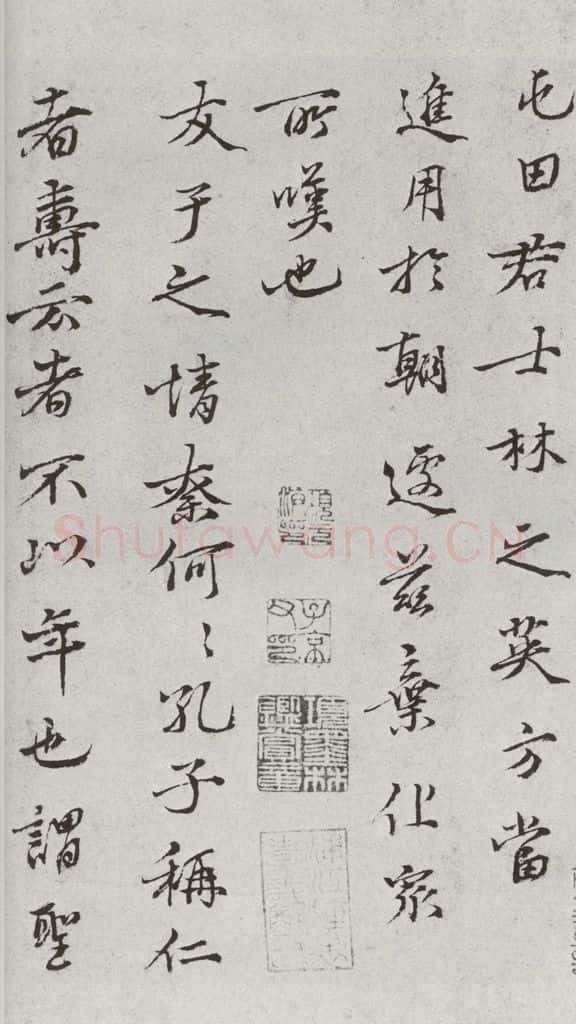 屯田若士林之英方當
進用於朝遽茲棄化衆
所嘆也
友子之情柰何〻孔子稱仁
者壽云者不以年也謂聖
Shufawang.CN